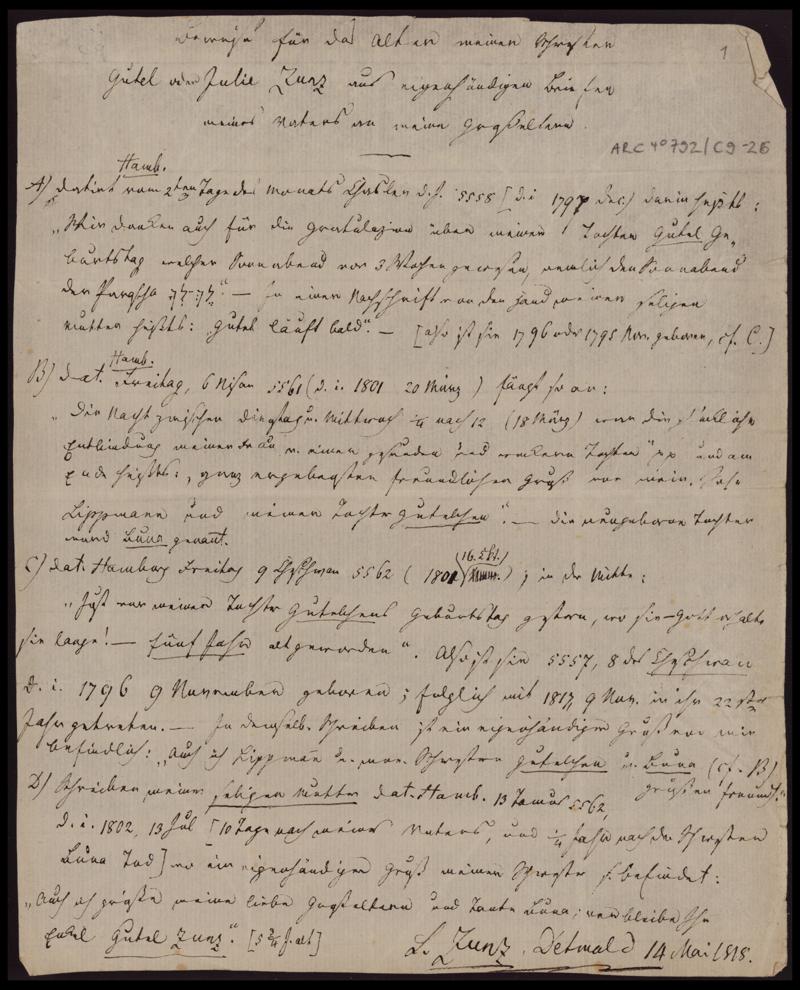 Beweise für das Alter meiner Schwester
Gutel oder Julie Zunz aus eigenhändigen Briefen
meines Vaters an meine Großeltern.
1
ARC 4° 792/C9-26
Hamb.
A) datirt vom 2ten Tage des Monats Chislev d. J. 5558 [d. i. 1797 Dec.) darin heißts:
„Wir danken auch für die Gratulazion über meiner Tochter Gutel Ge„
burtstag welcher Sonnabend vor 3 Wochen gewesen, nemlich den Sonnabend
der Parascha “ — In einer Nachschrift von der Hand meiner seligen
Mutter heißts: „Gutel läuft bald“. — [also ist sie 1796 oder 1795 Nov. geboren, cf. C.]
Hamb.
B) dat. Freitag, 6 Nisan 5561 (d. i. 1801 20 März) fängt so an:
„Die Nacht zwischen Dienstag u. Mittwoch ¼ nach 12 (18 März) war die glückliche
Entbindung meiner Frau v. einer gesunden und wackern Tochter“ pp und am
Ende heißts: „ganz ergebensten freundlichen Gruß von mein. Sohn
Lippmann und meiner Tochter Gutelchen“. — Die neugeborne Tochter
ward Buna genannt.
C) dat. Hamburg Freitag 9 Cheschwan 5562 (1801 16. Okt.); in der Mitte:
„Just war meiner Tochter Gutelchens Geburtstag gestern, wo sie — Gott erhalte
sie lange! — fünf Jahr alt geworden“. Also ist sie 5557, 8 des Cheschwan
d. i. 1796 9 November geboren; folglich mit 1817, 9 Nov. in ihr 22stes
Jahr getreten. — In demselb. Schreiben ist ein eigenhändiger Gruß von mir
befindlich: „Auch ich Lippmann u. mei. Schwestern Gutelchen u. Buna (cf. B)
grüßen freundl.“
D) Schreiben meiner seligen Mutter dat. Hamb. 13 Tamus 5562,
d. i. 1802, 13 Jul [10 Tage nach meines Vaters, und ¼ Jahr nach der Schwester
Buna Tod] wo ein eigenhändiger Gruß meiner Schwester s. befindet:
„Auch ich grüße meine liebe Großeltern und Tante Buna; verbleibe Ihr
Enkel Gutel Zunz“. [5 ¾ J. alt]
L. Zunz. Detmold 14 Mai 1818.